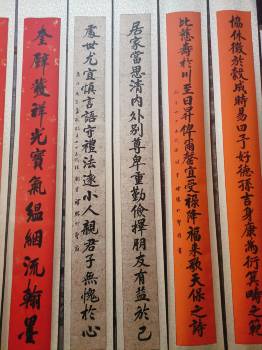 協休徵於穀成時易曰子好德孫吉身康為衍箕疇之範
比慈壽於川至日昇俾爾馨宜受祿降福來歌天保之詩
居家當思清內外別尊卑重勤儉擇朋友有益於己
處世尤宜慎言語守禮法遠小人親君子無愧於心
奎壁護祥光寶氣縕絪流翰墨